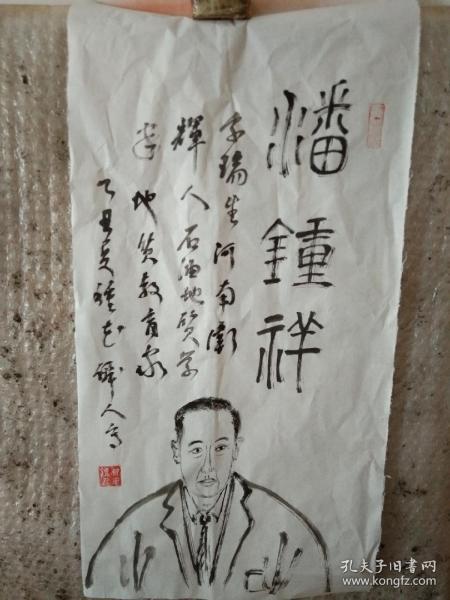 潘鍾祥
字瑞生河南衛
輝人石油地質学
家地质教育家
乙丑夏种花
孔夫子旧书网
www.kongfz.com